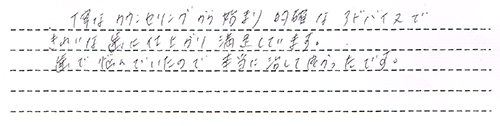 丁寧なカウンセリングから始まり 的確なアドバイスで
きれいな歯に仕上がり満足しています。
歯で悩んでいたので本当に治して良かったです。